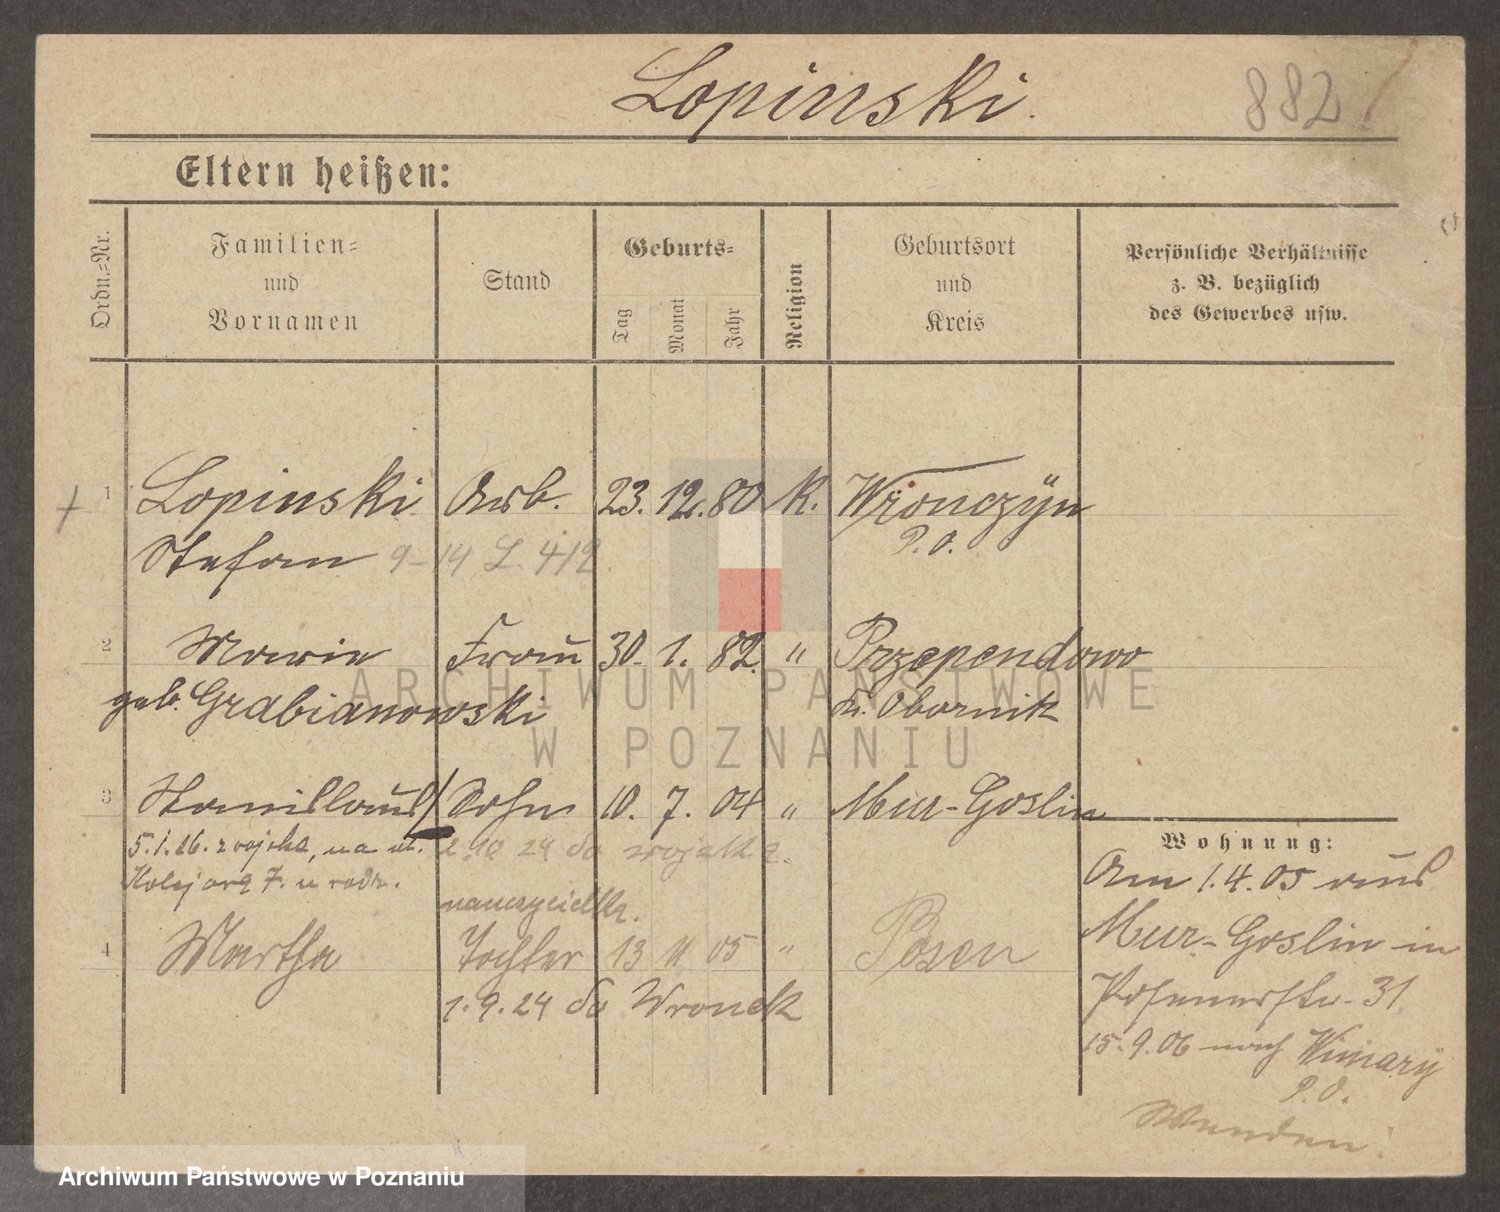 Lopinski.
882
Eltern heißen:
Ordn.=Nr.
Familien=
und
Vornamen
Stand
Geburts=
Tag
Monat
Jahr
Religion
Geburtsort
und
Kreis
Persönliche Verhältnisse
z. B. bezüglich
des Gewerbes usw.
1 Lopinski Arb. 23. 12. 80 K. Wronczÿn
P. O.
Stefan 9-14 L. 412.
2 Marie Frau 30. 1. 82. " Przependowo
geb. Grabianowski Kr. Obornik
3 Stanislaus Sohn 10. 7. 04 " Mur-Goslin
5.1.26. z wojska, na m. 2.10 24 do wojska.
Kolejarz 7. u rodz.
nauczycielka.
4 Martha Tochter 13 11 05 " Posen
1.9.24 do Wronek
Wohnung:
Am 1.4.05 aus
Mur-Goslin in
Posenerstr. 31
15.9.06 nach Winiarÿ
P. O.
Wenden!
ARCHIWUM PAŃSTWOWE
W POZNANIU
Archiwum Państwowe w Poznaniu